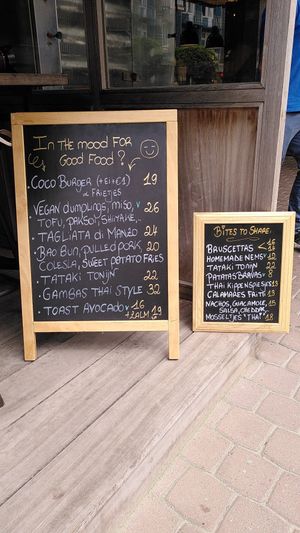 In THE mood FOR
Good Food?
• Coco Burger (+ei+€1) 19
& FRIETJES
• VEGAN dumplings, miso, v 26
TOFU, PAKSOI, SHIITAKE,.
• TAGLIATA di MANZO 24
• Bao Bun, pulled pork 20
COLESLA, SWEET POTATO FRIES
• TATAKI TONIJN 22
• GAMBAS THAI STYLE 32
• TOAST AVOCADO v 16
+ZALM 19
BITES TO SHARE.
BRUSCETTAS 16
14
HOMEMADE NEMS 12
TATAKI TONIJN 22
PATATAS BRAVAS 8
THAI KIPPENSPIESJES 13
CALAMARES FRITS 13
NACHOS, GUACAMOLE, 15
SALSA, CHEDDAR
MOSSELTJES "THAI" 18